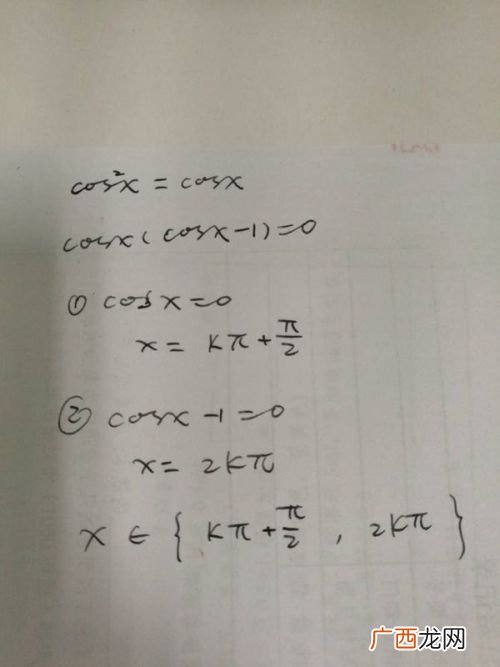 cos²x = cosx
cosx(cosx-1)=0
① cosx=0
x = kπ + π/2
② cosx-1=0
x = 2kπ
x ∈ { kπ + π/2 , 2kπ }
广西龙网